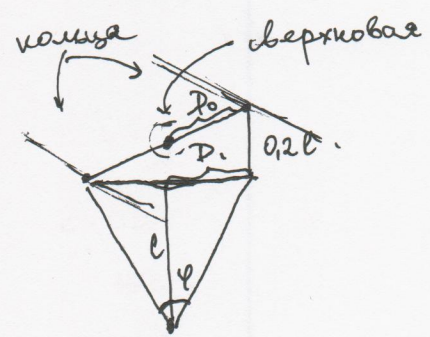 кольца
верховая
D₀
D₁
0,2ℓ.
ℓ
φ